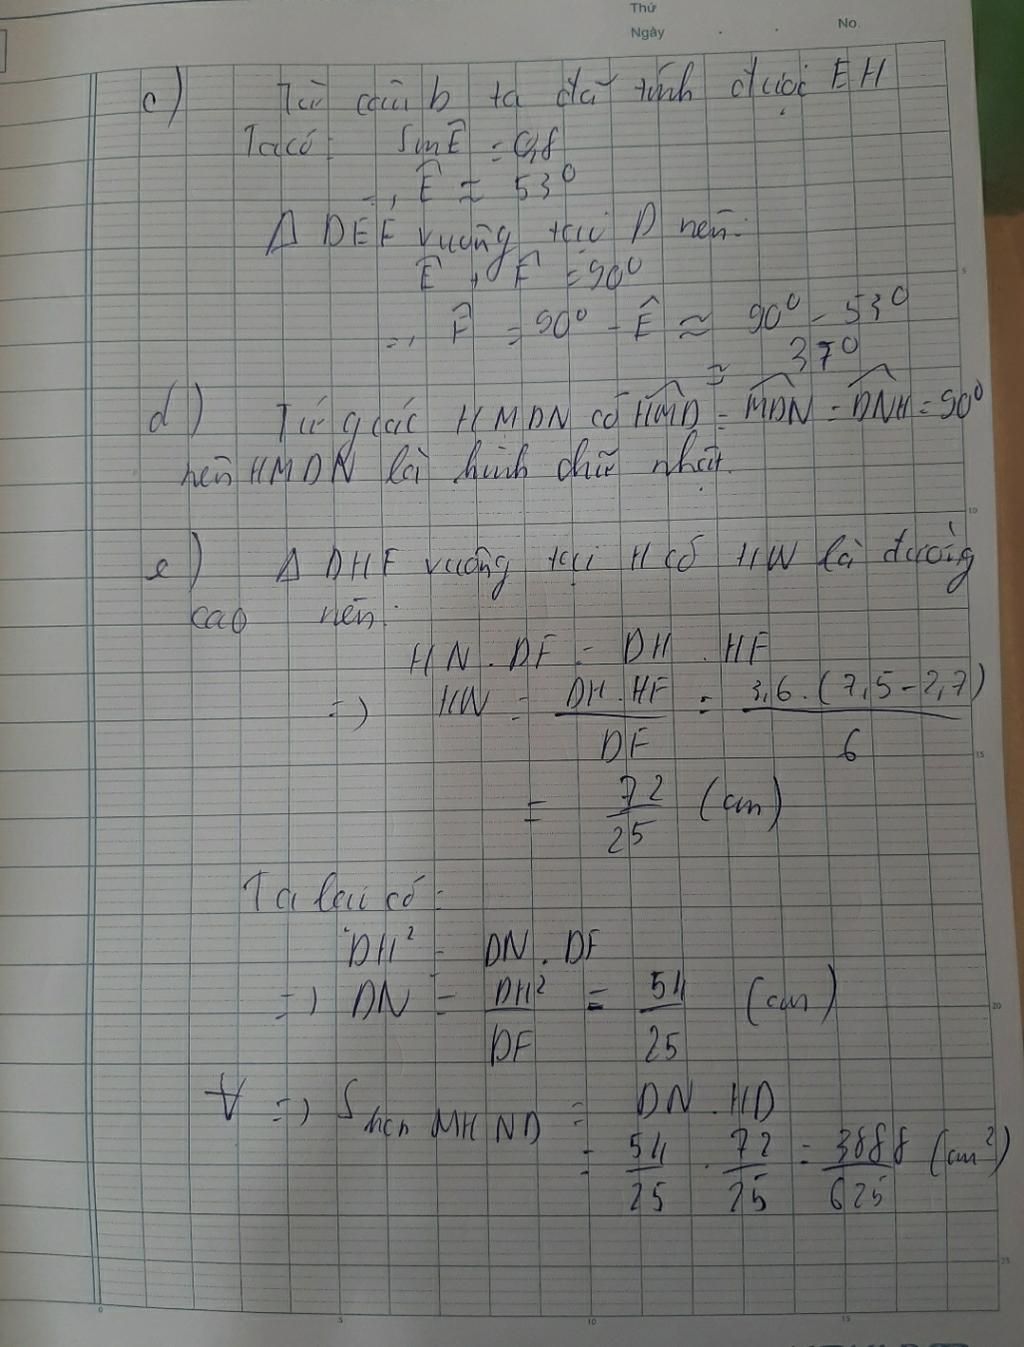 Thứ
Ngày . . No.
c) Từ câu b ta đã tính được EH
Ta có: Sin Ê = 0,8
=, Ê ≈ 53⁰
Δ DEF vuông tại D nên:
Ê + F̂ = 90⁰
=, F̂ = 90⁰ - Ê ≈ 90⁰ - 53⁰
≈ 37⁰
d) Tứ giác HMDN có HMD = MDN = DNH = 90⁰
nên HMDN là hình chữ nhật.
e) Δ DHF vuông tại H có HN là đường
cao nên:
HN . DF = DH . HF
=) HN = DH . HF / DF = 3,6 . (7,5 - 2,7) / 6
= 72 / 25 (cm)
Ta lại có:
DH² = DN . DF
=) DN = DH² / DF = 54 / 25 (cm)
=) S hcn MHND = DN . HD
= 54 / 25 . 72 / 25 = 3888 / 625 (cm²)
5
10
15
20
25
0 5 10 15